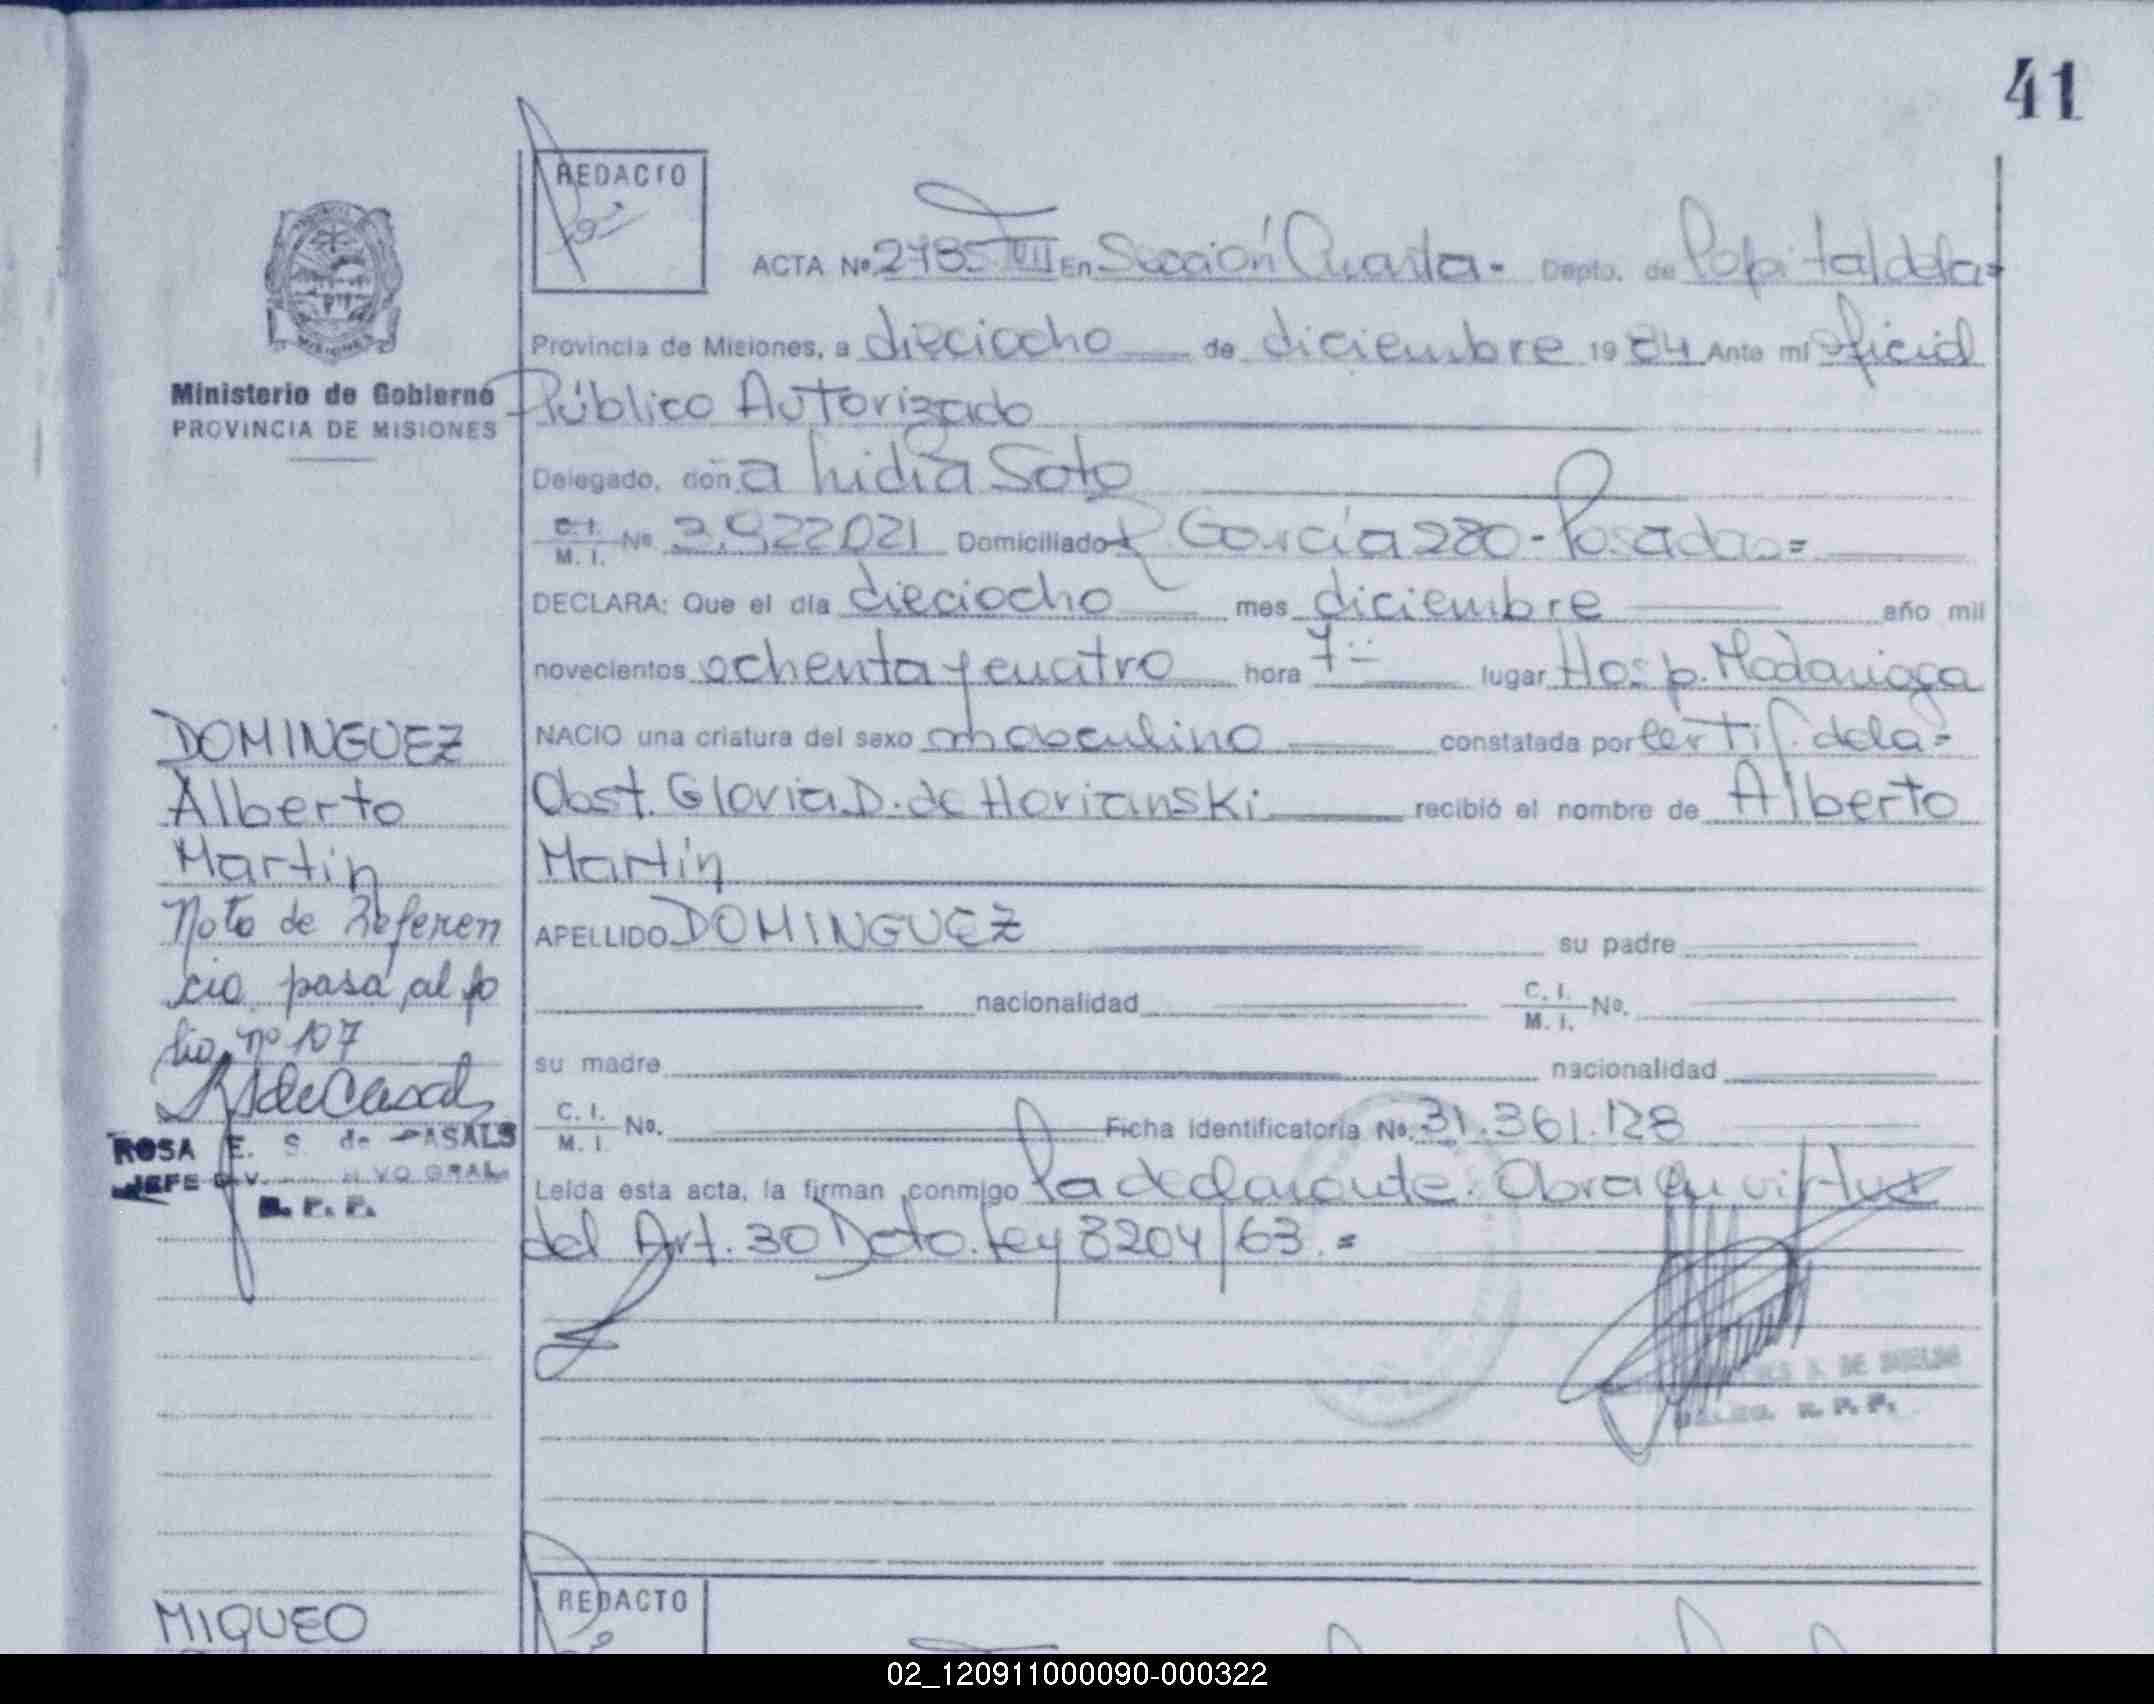 41
REDACTO
ACTA Nº 2785 VII En Sección Cuarta.- Depto. de Capital de la=
Provincia de Misiones, a dieciocho de diciembre 19 84 Ante mí Oficial
Ministerio de Gobierno
PROVINCIA DE MISIONES
Público Autorizado
Delegado, doña Lidia Soto
C. I. M. I. Nº 3.922021 Domiciliado García 280-Posadas=
DECLARA: Que el día dieciocho mes diciembre año mil
novecientos ochenta y cuatro hora 7.- lugar Hosp. Madariaga
DOMINGUEZ
Alberto
Martin
Nota de Referen
cia pasa al fo
lio nº 107
ROSA E. S. de CASALS
JEFE DIV. GRAL
R. P. P.
NACIO una criatura del sexo masculino constatada por Certif. de la=
Obst. Gloria D. de Horianski recibió el nombre de Alberto
Martín
APELLIDO DOMINGUEZ su padre
nacionalidad C. I. M. I. Nº.
su madre nacionalidad
C. I. M. I. Nº. Ficha identificatoria Nº. 31.361.128
Leída esta acta, la firman conmigo La declarante. Obra en virtud
del Art. 30 Dcto. Ley 8204/63.=
DE
R. P. P.
MIQUEO
REDACTO
02_120911000090-000322